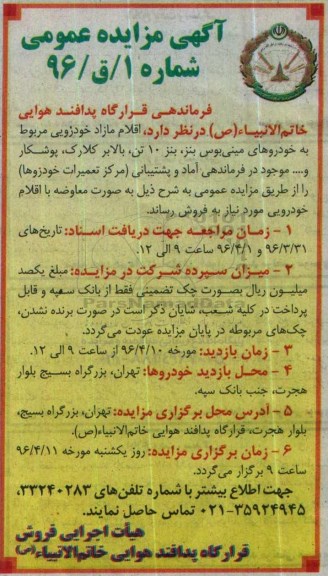 آگهی مزایده عمومی
شماره ۱/ق/۹۶
فرماندهی قرارگاه پدافند هوایی
خاتم‌الانبیاء(ص) درنظر دارد، اقلام مازاد خودرویی مربوط
به خودروهای مینی‌بوس بنز، بنز ۱۰ تن، بالابر کلارک، پوشکار
و.... موجود در فرماندهی آماد و پشتیبانی (مرکز تعمیرات خودروها)
را از طریق مزایده عمومی به شرح ذیل به صورت معاوضه با اقلام
خودرویی مورد نیاز به فروش رساند.
۱ - زمان مراجعه جهت دریافت اسناد: تاریخ‌های
۹۶/۳/۳۱ و ۹۶/۴/۱ ساعت ۹ الی ۱۲.
۲ - میزان سپرده شرکت در مزایده: مبلغ یکصد
میلیون ریال بصورت چک تضمینی فقط از بانک سپه و قابل
پرداخت در کلیه شعب، شایان ذکر است در صورت برنده نشدن،
چک‌های مربوطه در پایان مزایده عودت می‌گردد.
۳ - زمان بازدید: مورخه ۹۶/۴/۱۰ از ساعت ۹ الی ۱۲.
۴ - محل بازدید خودروها: تهران، بزرگراه بسیج بلوار
هجرت، جنب بانک سپه.
۵ - آدرس محل برگزاری مزایده: تهران، بزرگراه بسیج،
بلوار هجرت، قرارگاه پدافند هوایی خاتم‌الانبیاء(ص).
۶ - زمان برگزاری مزایده: روز یکشنبه مورخه ۹۶/۴/۱۱
ساعت ۹ برگزار می‌گردد.
جهت اطلاع بیشتر با شماره تلفن‌های ۳۳۲۴۰۲۸۳،
۰۲۱-۳۵۹۲۴۹۴۵ تماس حاصل نمایند.
هیأت اجرایی فروش
قرارگاه پدافند هوایی خاتم‌الانبیاء(ص)